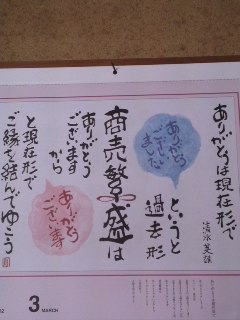 ありがとうは現在形で
清水英雄
ありがとう
ございました
というと
過去形
商売繁盛は
ありがとう
ございます
から
ありがとう
ございます
と現在形で
ご縁を結んでゆこう
3
MARCH